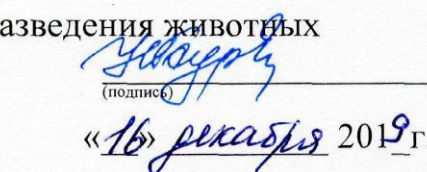 азведения животных
(подпись)
«16» декабря 2019 г